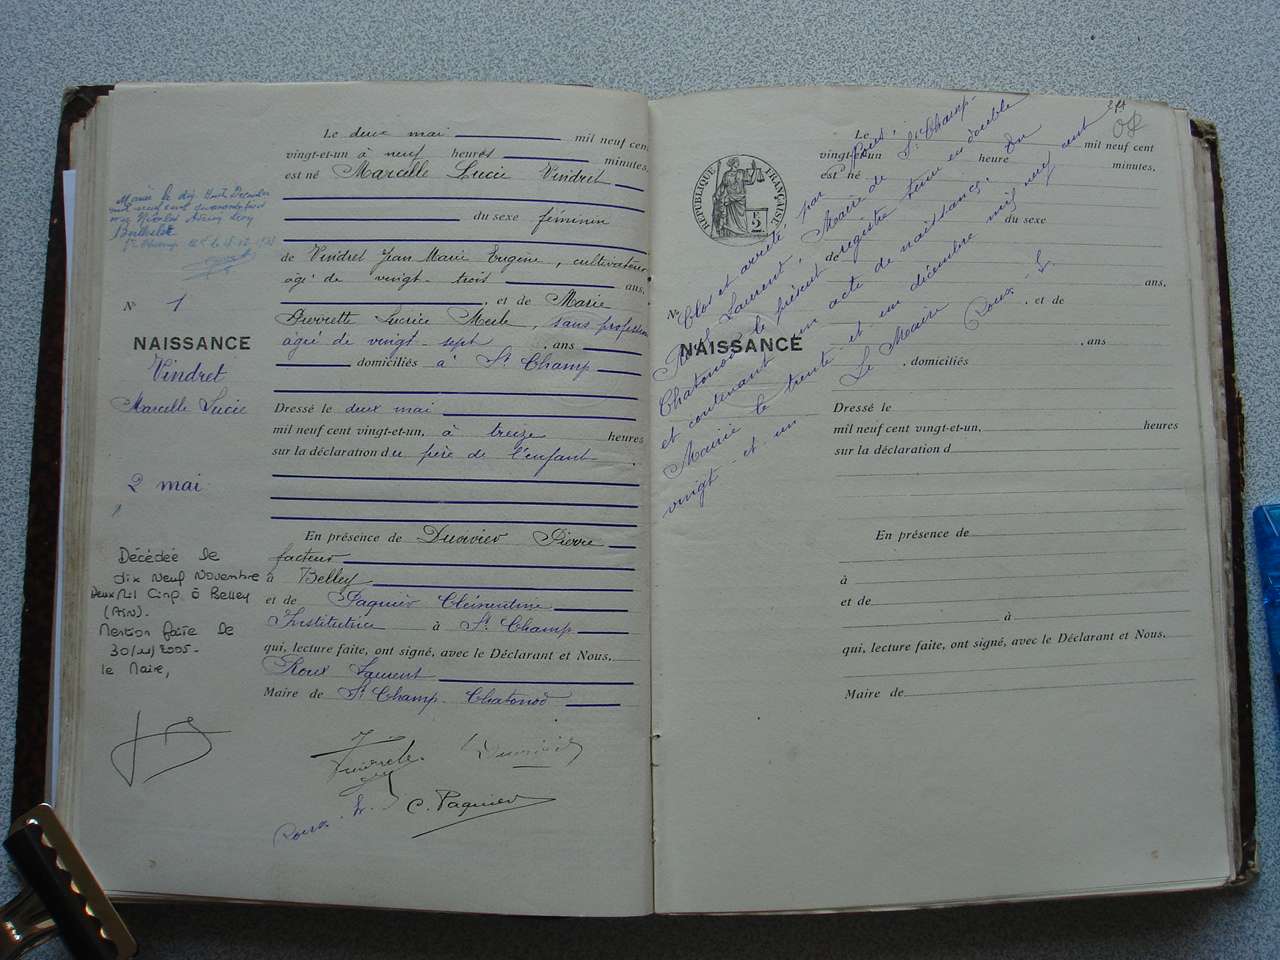 Le deux mai mil neuf cent
vingt-et-un à neuf heures minutes.
est né Marcelle Lucie Vindret
du sexe féminin
de Vindret Jean Marie Eugène, cultivateur
agé de vingt-trois ans,
, et de Marie
Pierrette Lucrèce Merle, sans profession
agée de vingt-sept , ans
domiciliés à St Champ
Dressé le deux mai
mil neuf cent vingt-et-un, à treize heures
sur la déclaration du père de l'enfant
En présence de Duvivier Pierre
facteur
à Belley
et de Paquier Clémentine
Institutrice à St Champ
qui, lecture faite, ont signé, avec le Déclarant et Nous,
Roux Laurent
Maire de St Champ-Chatonod
C. Paquier
Roux L.
Mariée le dix huit Décembre
mil neuf cent
N° 1
NAISSANCE
Vindret
Marcelle Lucie
2 mai
Décédée le
dix Neuf Novembre
Deux Mil Cinq à Belley
(AIN).
Mention faite le
30/11/2005-
le Maire,
Le mil neuf cent
vingt-et-un heure minutes.
est né
du sexe
de
ans,
, et de
, ans
, domiciliés
Dressé le
mil neuf cent vingt-et-un, heures
sur la déclaration d
En présence de
à
et de
à
qui, lecture faite, ont signé, avec le Déclarant et Nous,
Maire de
RÉPUBLIQUE FRANÇAISE
N°
NAISSANCE
Clos et arrêté par Nous,
Roux Laurent, Maire de St Champ-
Chatonod le présent registre tenu en double
et contenant un acte de naissance. En
Mairie le trente et un décembre mil neuf cent
vingt-et-un
Le Maire
Roux L.